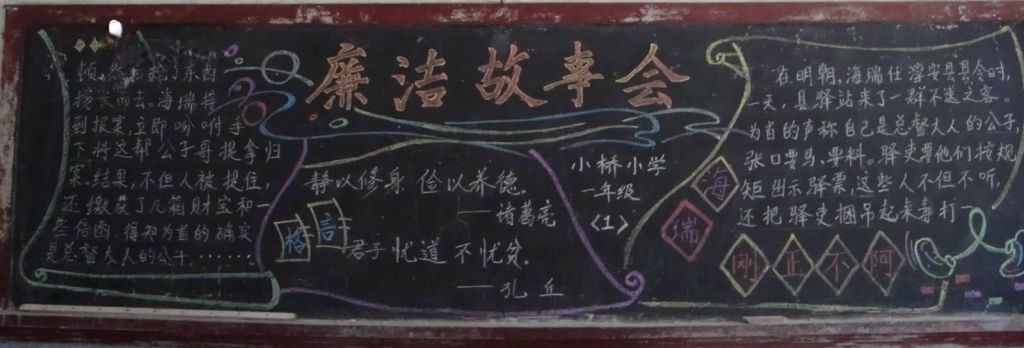 廉洁故事会
在明朝,海瑞任淳安县县令时,
一天,县驿站来了一群不速之客。
为首的声称自己是总督大人的公子,
张口要马、要料。驿吏要他们按规
矩出示驿票,这些人不但不听,
还把驿吏捆吊起来毒打一
海瑞
刚正不阿
顿,然后抢了东西
扬长而去。海瑞接
到报案,立即吩咐手
下将这帮公子哥捉拿归
案。结果,不但人被捉住,
还缴获了几箱财宝和一
些信函,得知为首的确实
是总督大人的公子……
静以修身 俭以养德。
——诸葛亮
格言
君子忧道 不忧贫。
——孔丘
小桥小学
一年级
<1>